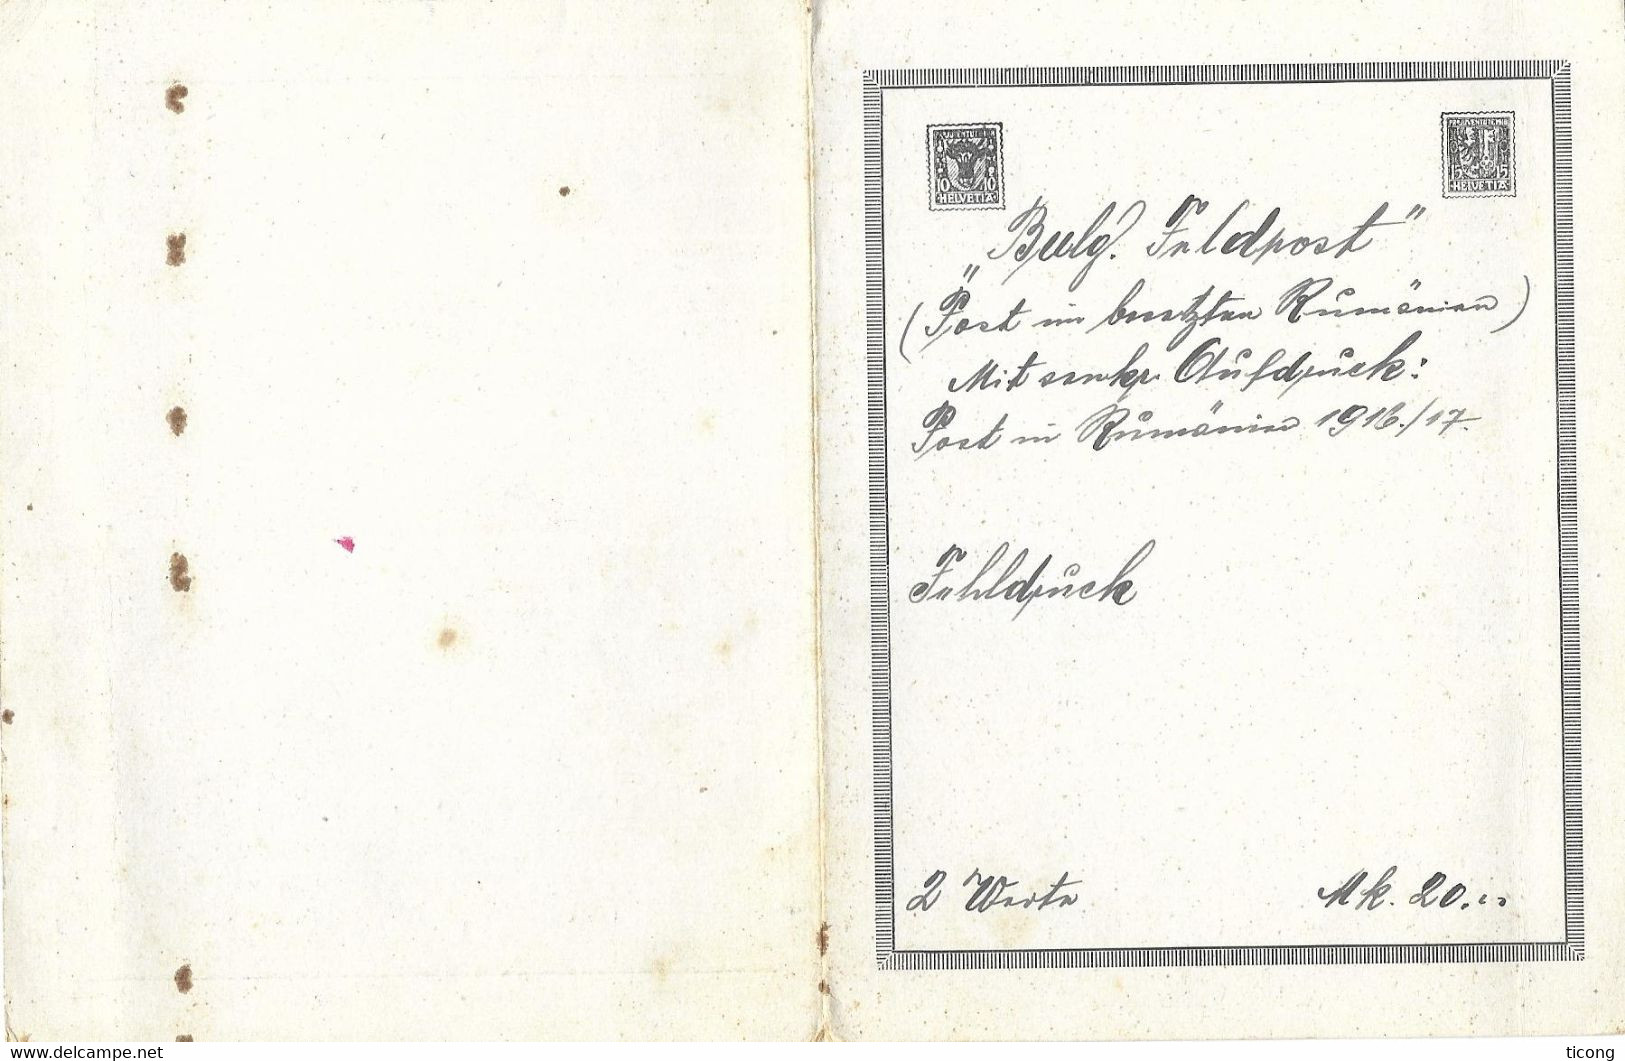 JUVENTUTE
10 10
HELVETIA
PRO JUVENTUTE 1918
15 15
HELVETIA
„Bulg. Feldpost“
(Post im besetzten Rumänien)
Mit senkr. Aufdruck:
Post in Rumänien 1916./17.
Fehldruck
2 Werte Mk. 20.--
www.delcampe.net
ticong